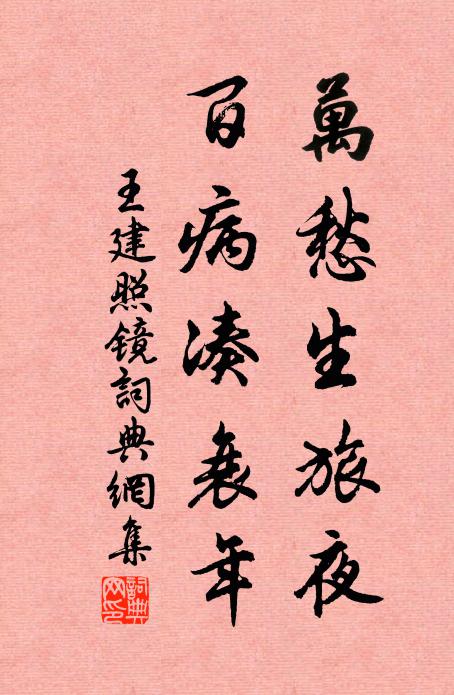 萬愁生旅夜
百病湊衰年
王建照鏡詞典網集
詞典網印